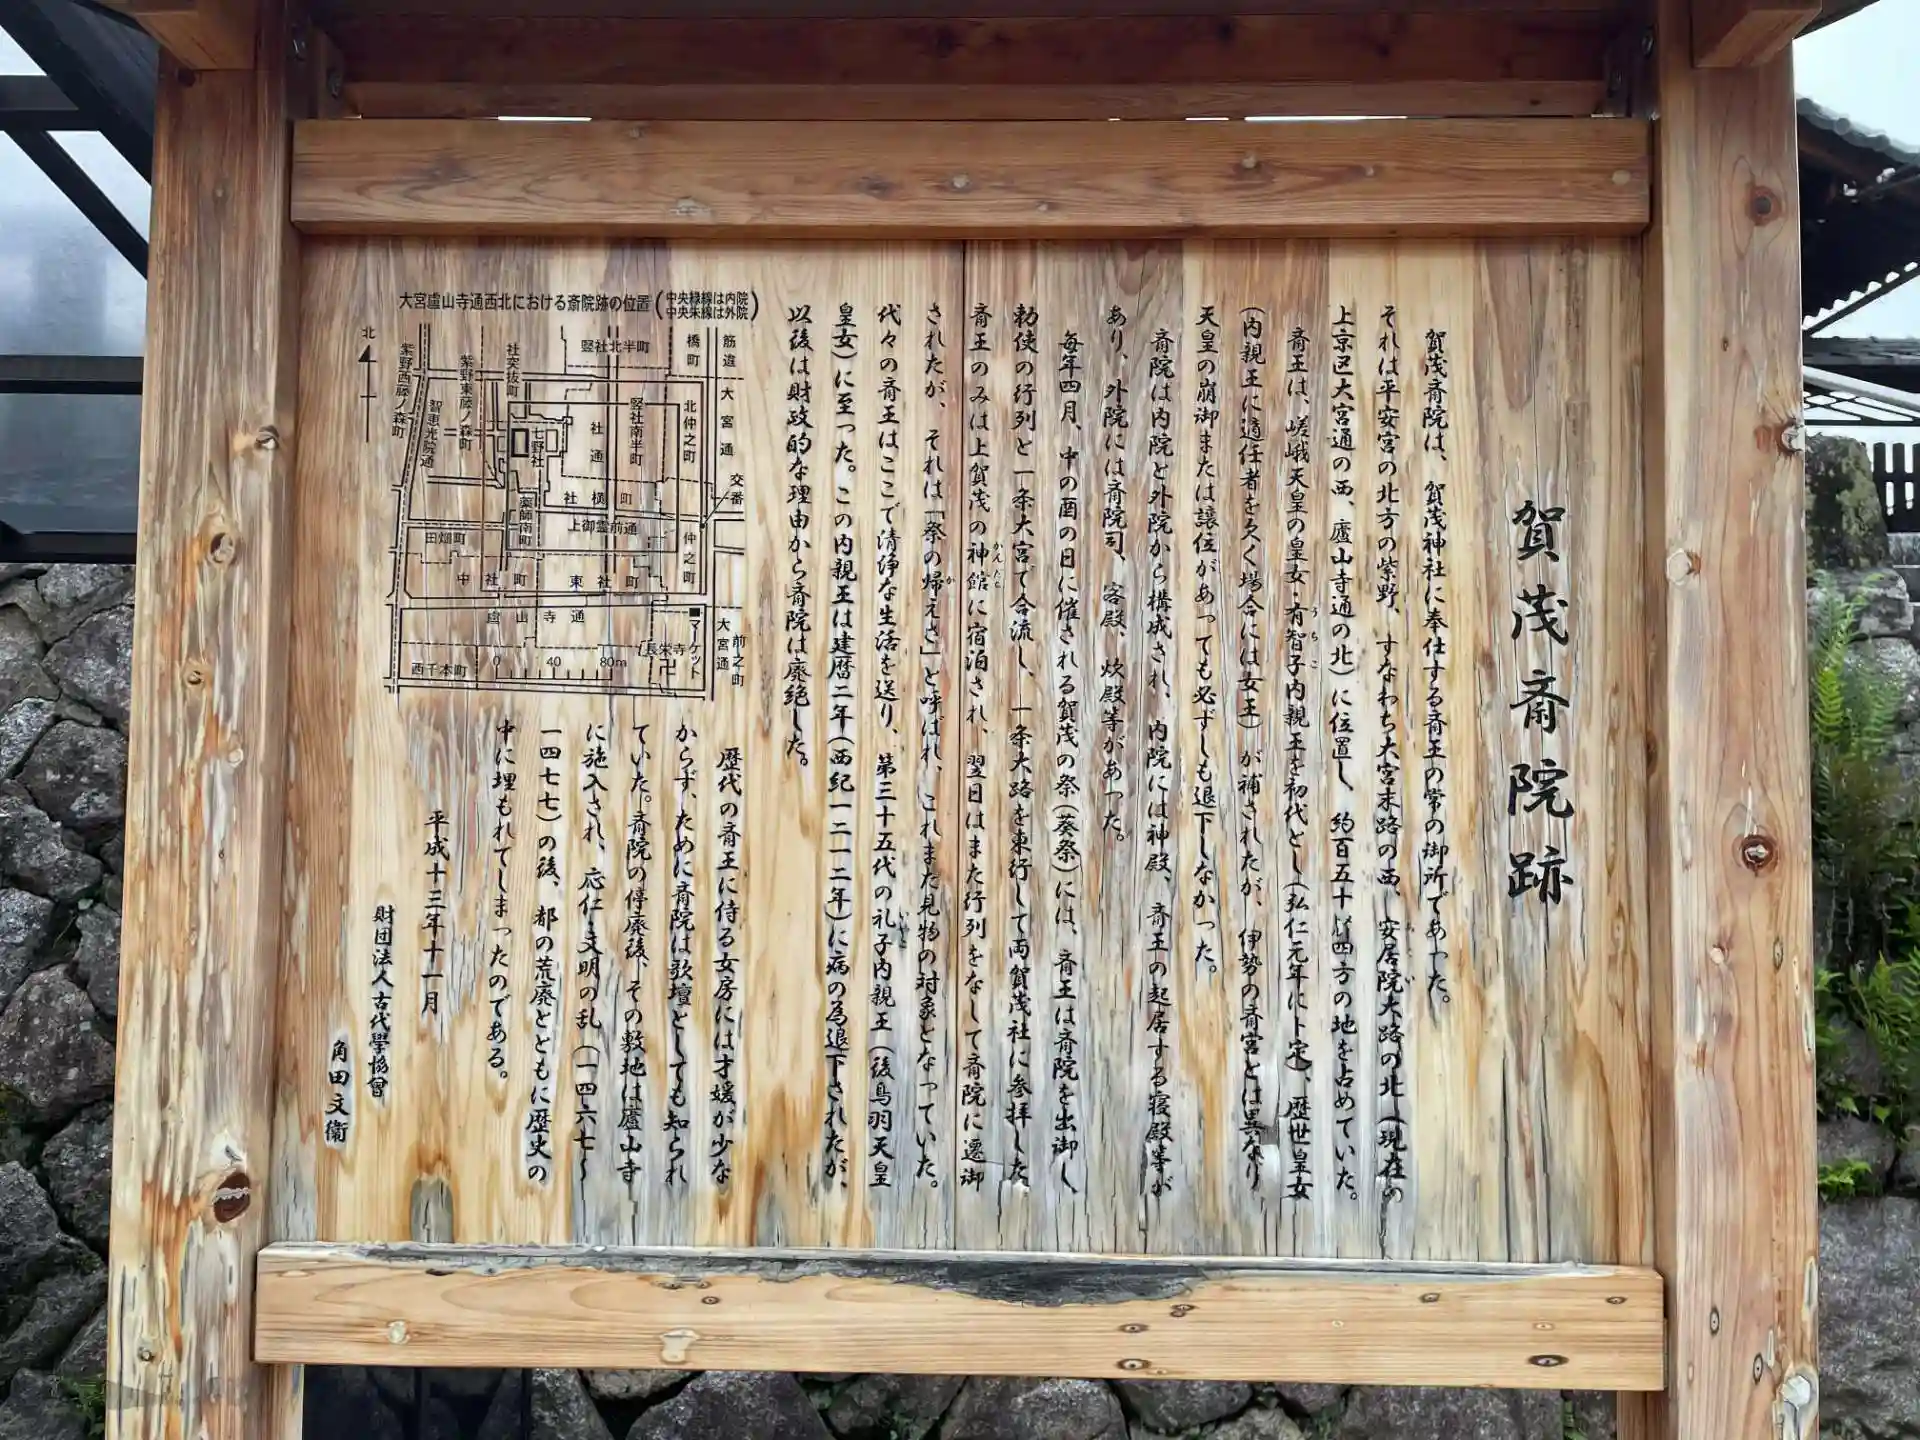 賀茂斎院跡
賀茂斎院は、賀茂神社に奉仕する斎王の常の御所であった。
それは平安宮の北方の紫野、すなわち大宮末路の西、安居院大路の北(現在の
上京区大宮通の西、廬山寺通の北)に位置し、約百五十㍍四方の地を占めていた。
斎王は、嵯峨天皇の皇女・有智子内親王を初代とし(弘仁元年に卜定)、歴世皇女
うちこ
(内親王に適任者を欠く場合には女王)が補されたが、伊勢の斎宮とは異なり
天皇の崩御または譲位があっても必ずしも退下しなかった。
斎院は内院と外院から構成され、内院には神殿、斎王の起居する寝殿等が
あり、外院には斎院司、客殿、炊殿等があった。
毎年四月、中の酉の日に催される賀茂の祭(葵祭)には、斎王は斎院を出御し、
勅使の行列と一条大宮で合流し、一条大路を東行して両賀茂社に参拝した。
斎王のみは上賀茂の神館に宿泊され、翌日はまた行列をなして斎院に還御
かんだち
されたが、それは「祭の帰えさ」と呼ばれ、これまた見物の対象となっていた。
か
代々の斎王はここで清浄な生活を送り、第三十五代の礼子内親王(後鳥羽天皇
いやこ
皇女)に至った。この内親王は建暦二年(西紀一二一二年)に病の為退下されたが、
以後は財政的な理由から斎院は廃絶した。
歴代の斎王に侍る女房には才媛が少な
からず、ために斎院は歌壇としても知られ
ていた。斎院の停廃後、その敷地は廬山寺
に施入され、応仁・文明の乱(一四六七〜
一四七七)の後、都の荒廃とともに歴史の
中に埋もれてしまったのである。
平成十三年十一月
財団法人古代學協會
角田文衞
大宮廬山寺通西北における斎院跡の位置(中央緑線は内院
中央朱線は外院)
北
紫野西藤ノ森町
智恵光院通
紫野東藤ノ森町
社突抜町
竪社北半町
橋町
筋違
大宮通
竪社南半町
北仲之町
社通
七野社
交番
社横町
薬師南町
上御霊前通
仲之町
田畑町
中社町
東社町
廬山寺通
マーケット
大宮通
前之町
長栄寺
卍
西千本町
0 40 80m